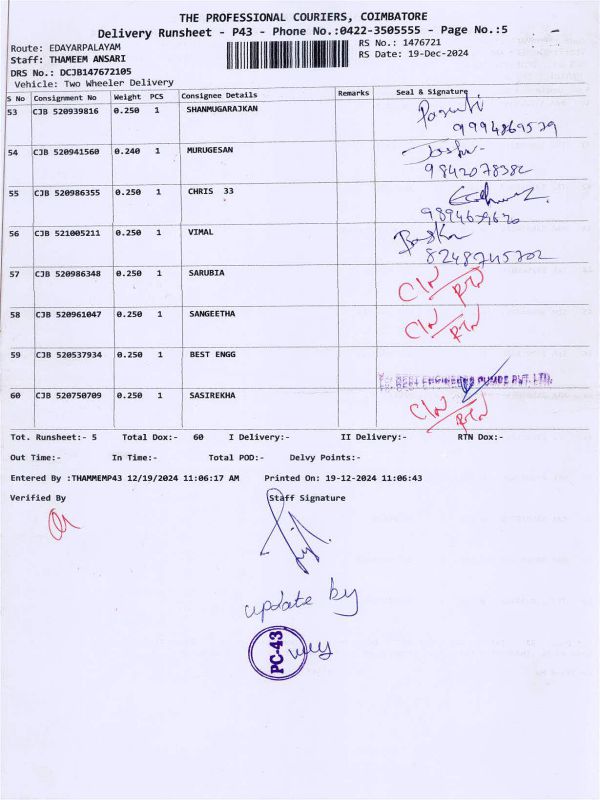 THE PROFESSIONAL COURIERS, COIMBATORE
Delivery Runsheet - P43 - Phone No.:0422-3505555 - Page No.:5
Route: EDAYARPALAYAM
RS No.: 1476721
Staff: THAMEEM ANSARI
RS Date: 19-Dec-2024
DRS No.: DCJB147672105
Vehicle: Two Wheeler Delivery
S No Consignment No Weight PCS Consignee Details Remarks Seal & Signature
53 CJB 520939816 0.250 1 SHANMUGARAJKAN
9994869539
54 CJB 520941560 0.240 1 MURUGESAN
9842078382
55 CJB 520986355 0.250 1 CHRIS 33
9894679620
56 CJB 521005211 0.250 1 VIMAL
8248745702
57 CJB 520986348 0.250 1 SARUBIA
58 CJB 520961047 0.250 1 SANGEETHA
59 CJB 520537934 0.250 1 BEST ENGG
PUMPS PVT. LTD.
60 CJB 520750709 0.250 1 SASIREKHA
Tot. Runsheet:- 5 Total Dox:- 60 I Delivery:- II Delivery:- RTN Dox:-
Out Time:- In Time:- Total POD:- Delvy Points:-
Entered By :THAMMEMP43 12/19/2024 11:06:17 AM Printed On: 19-12-2024 11:06:43
Verified By Staff Signature
update by
PC-43